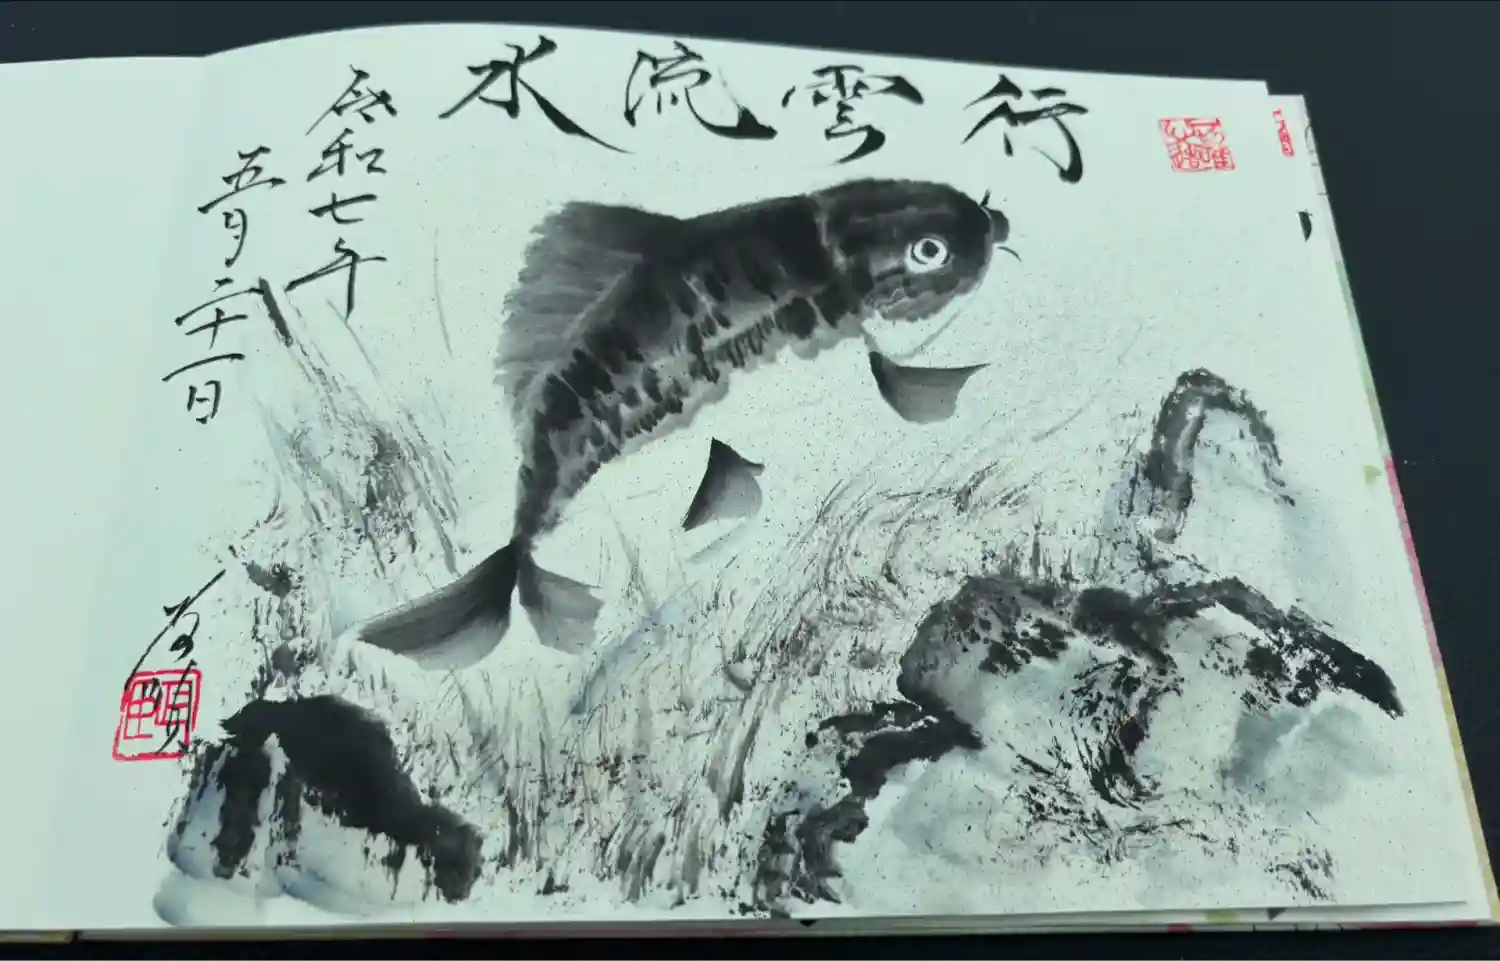 行雲流水
令和七年
五月二十一日